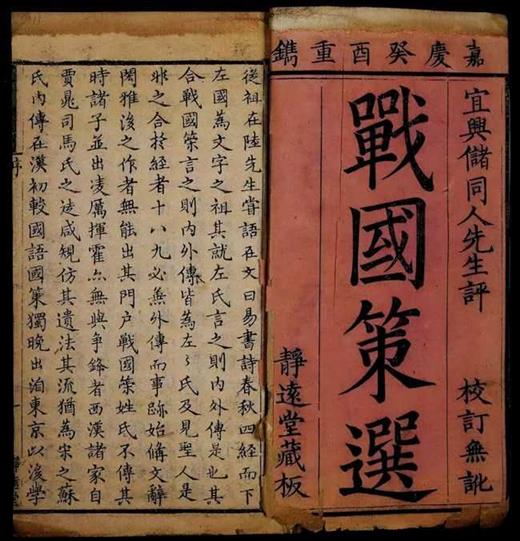 嘉慶癸酉重鐫
宜興儲同人先生評
校訂無訛
戰國策選
靜遠堂藏板
從祖在陸先生嘗語在文曰易書詩春秋四經而下
左國為文字之祖其就左氏言之則內外傳是也其
合戰國策言之則內外傳皆為左左氏及見聖人是
非之合於經者十八九必無外傳而事跡始備文辭
閎雅後之作者無能出其門戶戰國策姓氏不傳其
時諸子並出凌厲揮霍亦無與爭鋒者西漢諸家自
賈晁司馬氏之遠咸規仿其遺法其流猶為宋之蘇
氏內傳在漢初較國語國策獨晚出洎東京以後學
序